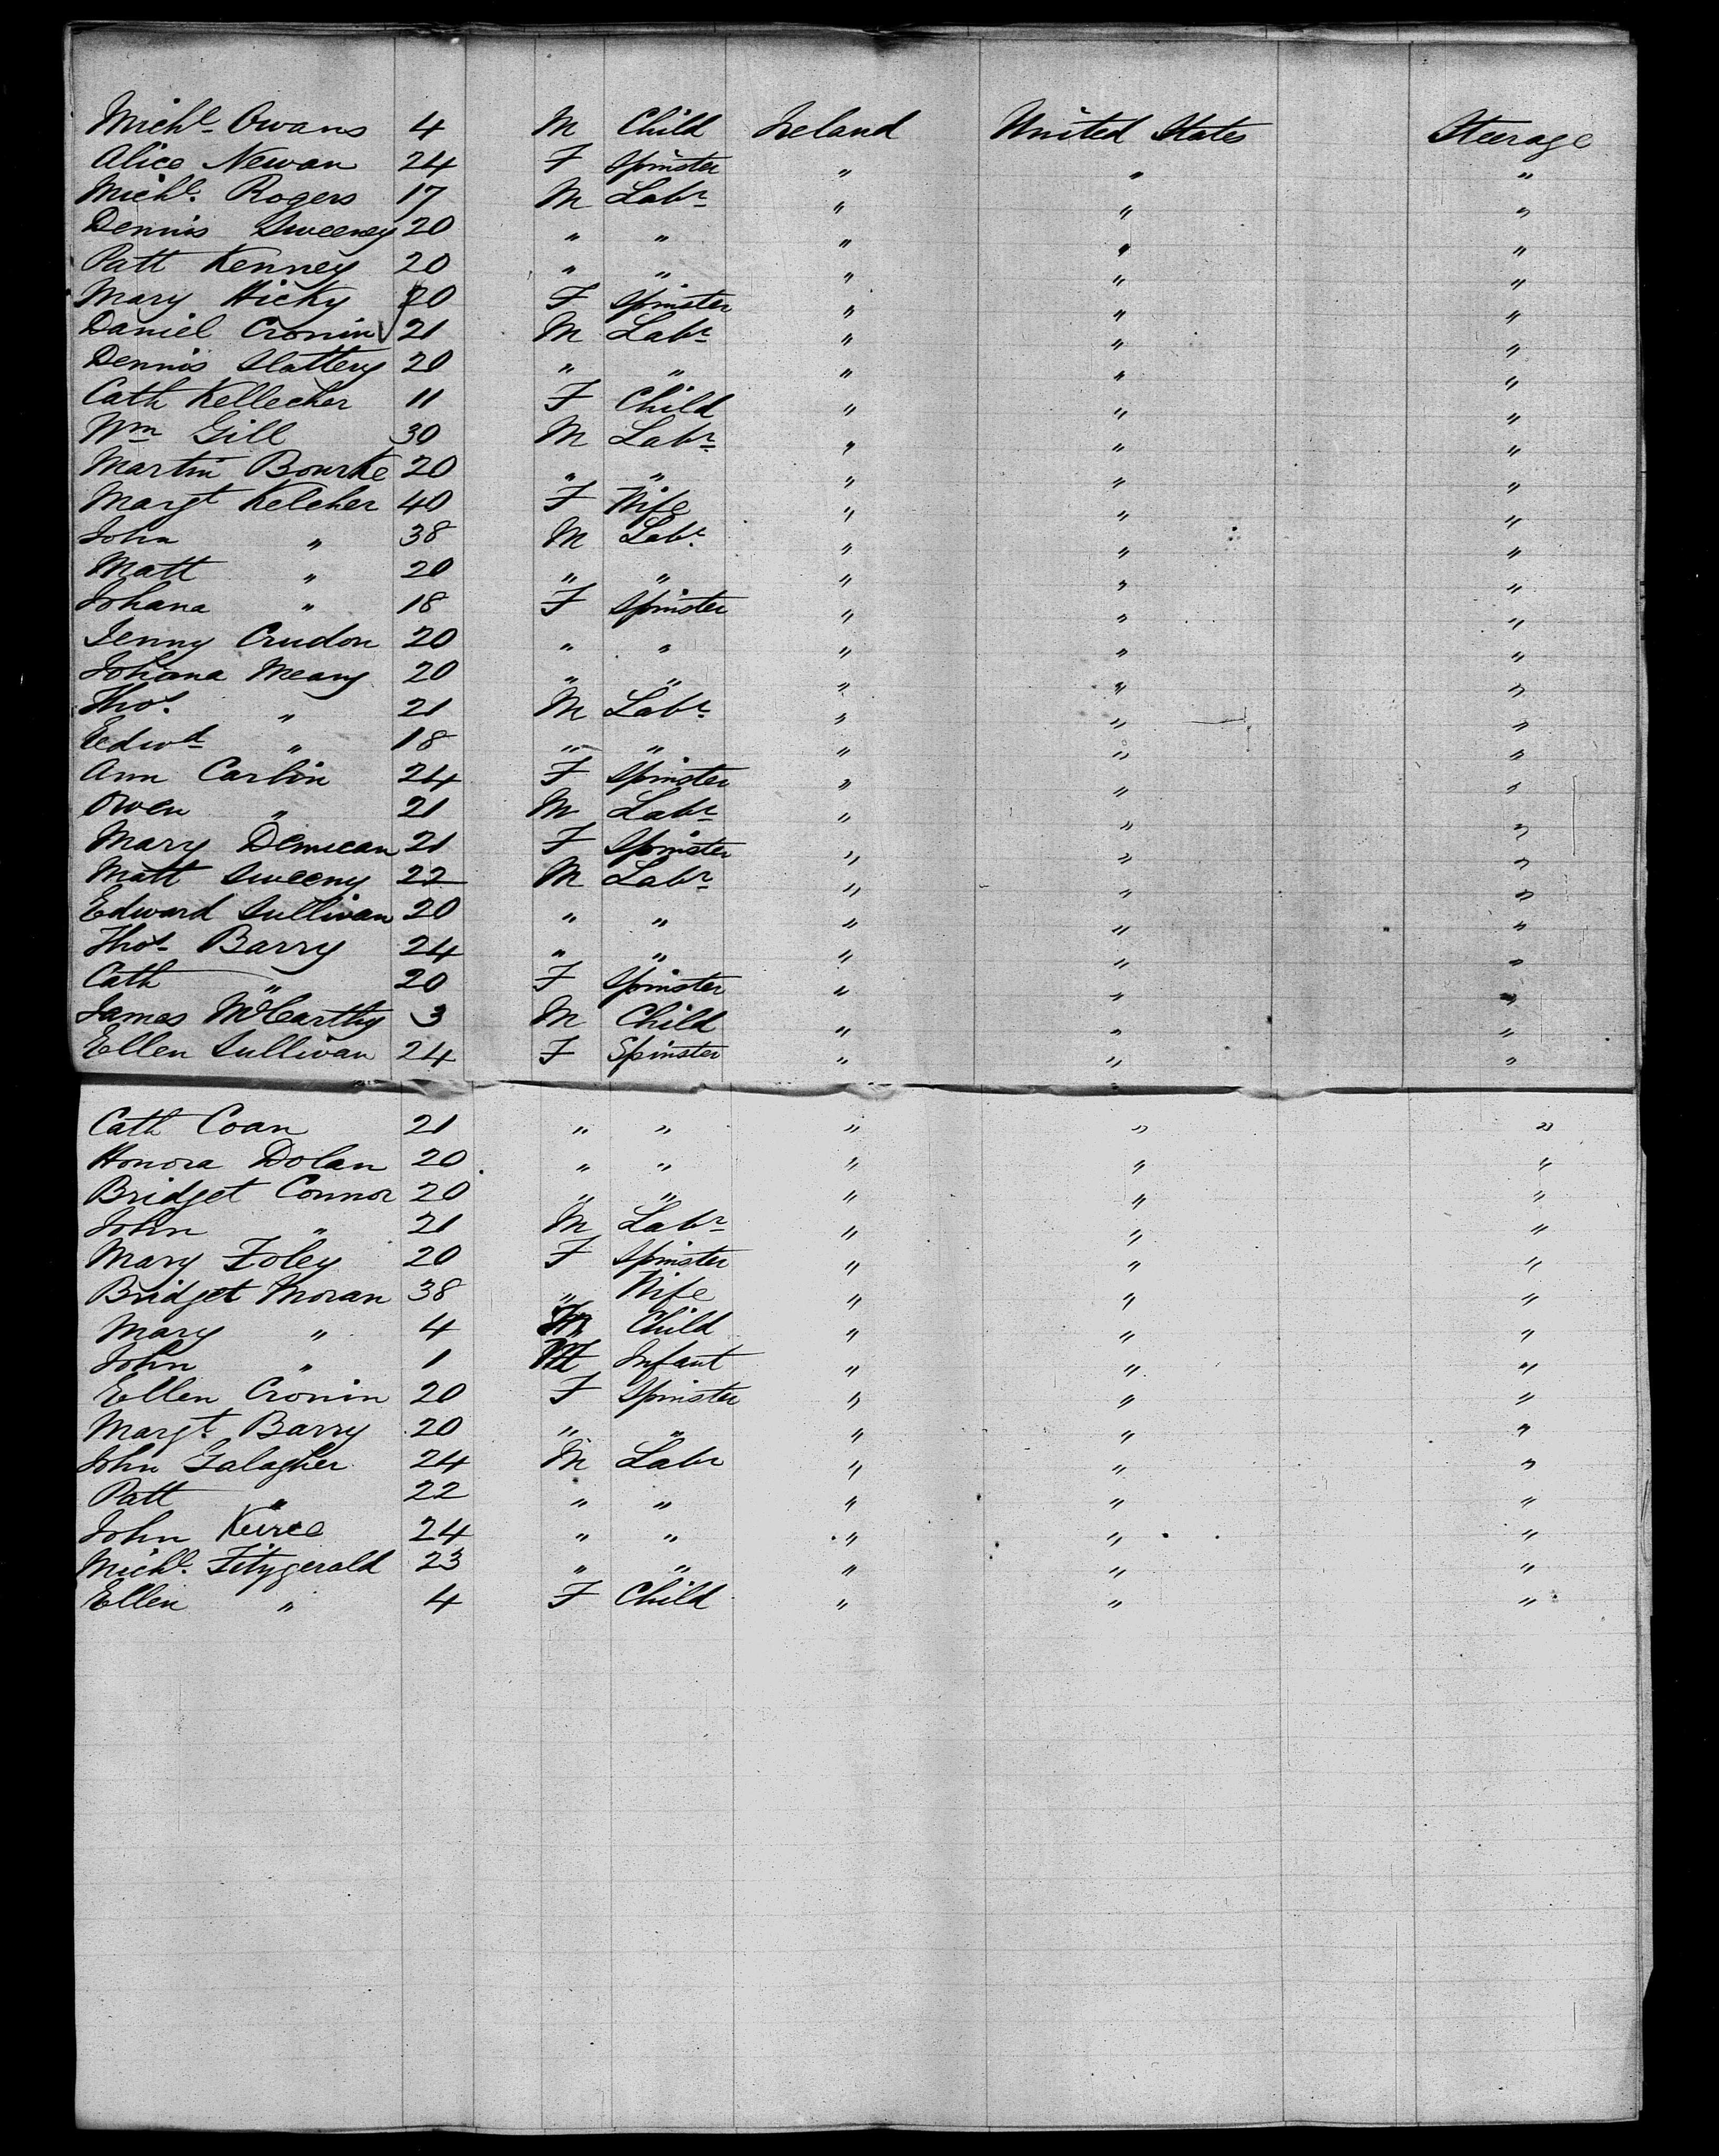 Michl. Owans 4 M Child Ireland United States Steerage
Alice Newan 24 F Spinster " " "
Michl. Rogers 17 M Labr " " "
Dennis Sweeney 20 " " " " "
Patt Kenney 20 " " " " "
Mary Hicky 20 F Spinster " " "
Daniel Cronin 21 M Labr " " "
Dennis Slattery 20 " " " " "
Cath Kellecher 11 F Child " " "
Wm Gill 30 M Labr " " "
Martin Bourke 20 " " " " "
Margt Kelcher 40 F Wife " " "
John " 38 M Labr. " " "
Matt " 20 " " " " "
Johana " 18 F Spinster " " "
Jenny Crudon 20 " " " " "
Johana Meany 20 " " " " "
Thos. " 21 M Labr. " " "
Edwd " 18 " " " " "
Ann Carlin 24 F Spinster " " "
Owen " 21 M Labr " " "
Mary 21 F Spinster " " "
Matt Sweeny 22 M Labr " " "
Edward Sullivan 20 " " " " "
Thos. Barry 24 " " " " "
Cath " 20 F Spinster " " "
James McCarthy 3 M Child " " "
Ellen Sullivan 24 F Spinster " " "
Cath Coan 21 " " " " "
Honora Dolan 20 " " " " "
Bridget Connor 20 " " " " "
John " 21 M Labr " " "
Mary Foley 20 F Spinster " " "
Bridget Moran 38 " Wife " " "
Mary " 4 Child " " "
John " 1 M Infant " " "
Ellen Cronin 20 F Spinster " " "
Margt. Barry 20 " " " " "
John Galagher 24 M Labr " " "
Patt " 22 " " " " "
John 24 " " " " "
Michl. Fitzgerald 23 " " " " "
Ellen " 4 F Child " " "